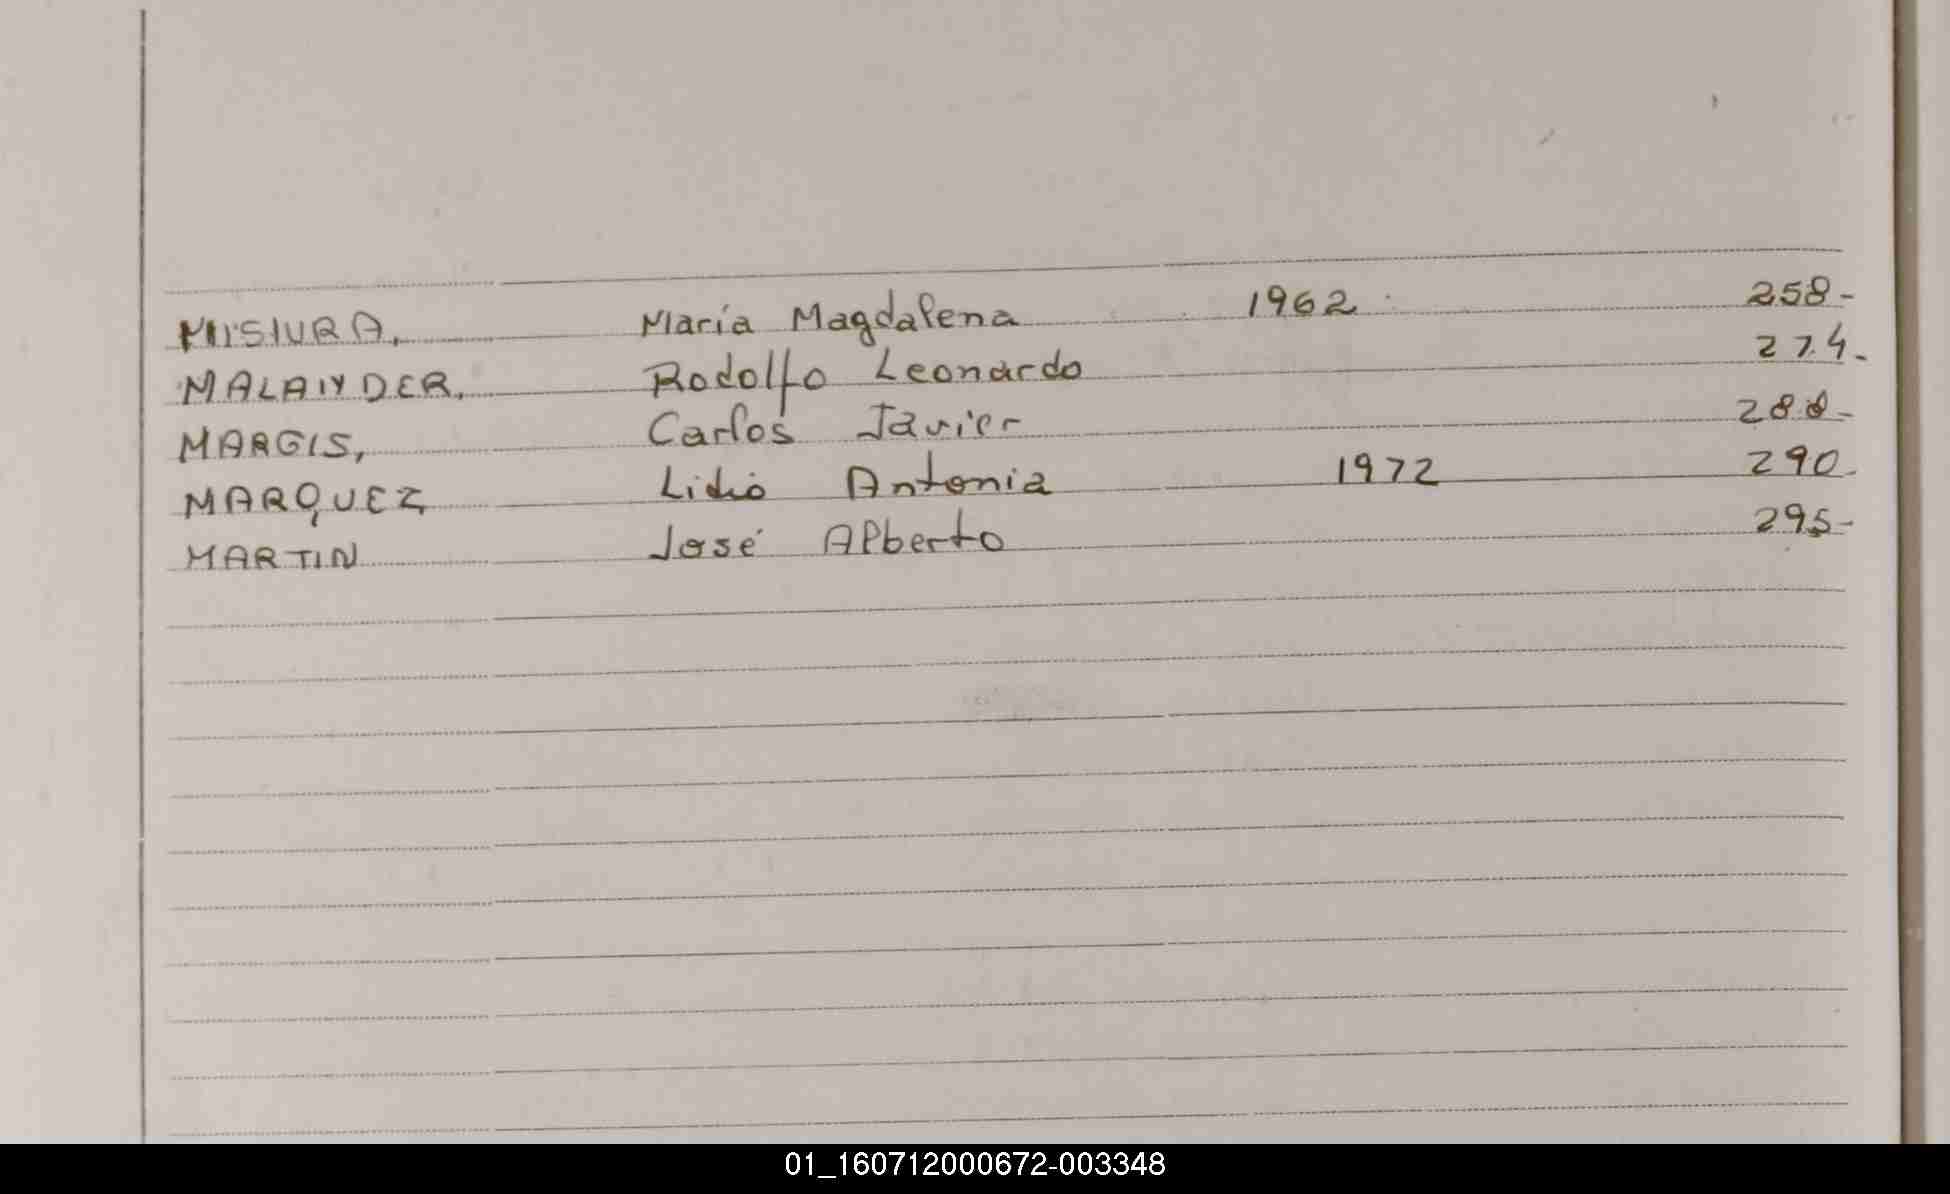 MISIURA, María Magdalena 1962 258-
MALANDER, Rodolfo Leonardo 274-
MARGIS, Carlos Javier 288-
MARQUEZ Lidia Antonia 1972 290-
MARTIN José Alberto 295-
01_160712000672-003348